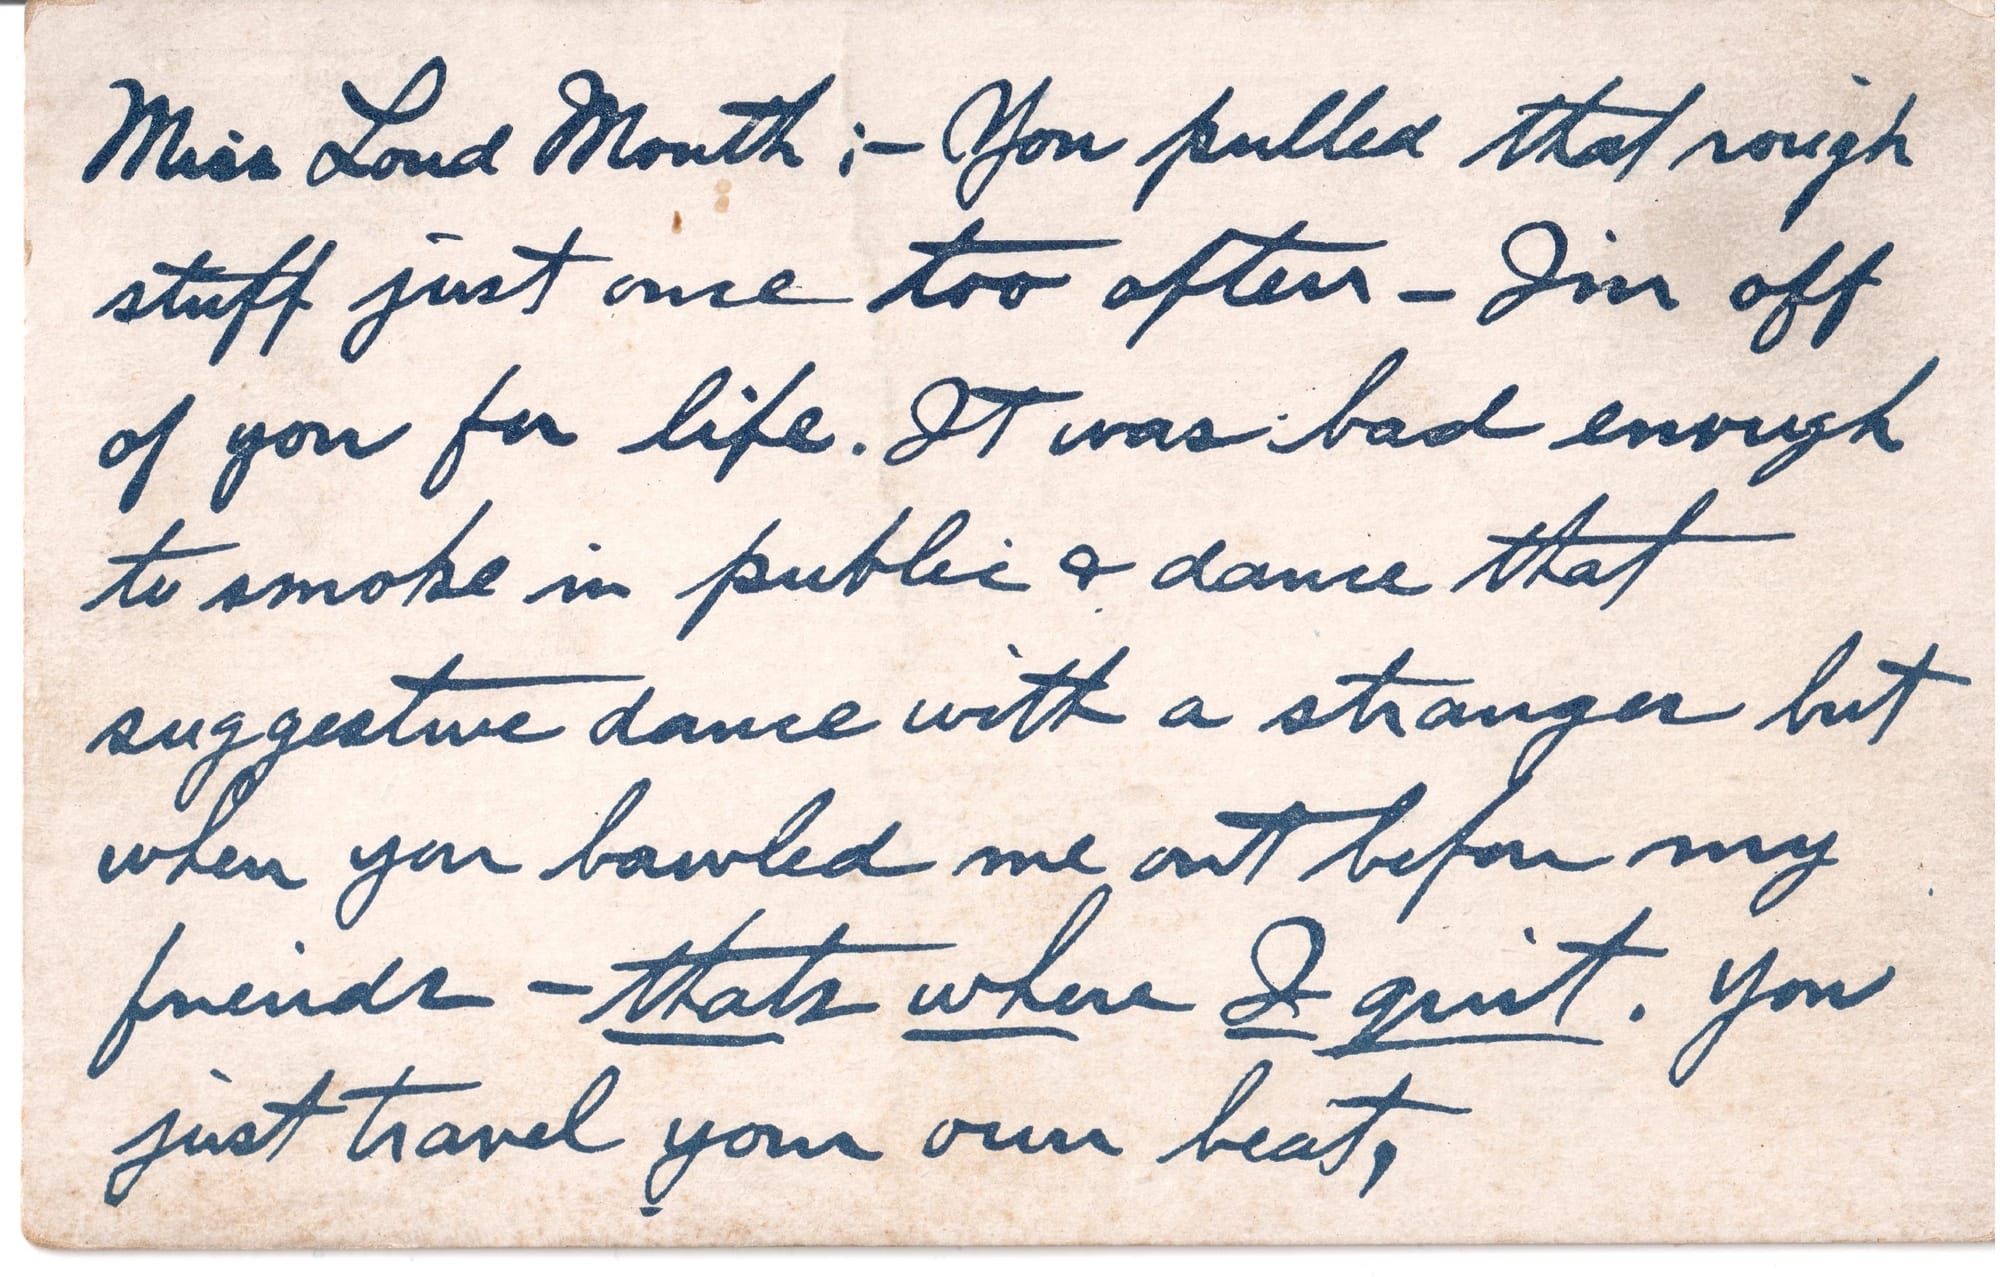 Miss Loud Mouth ;- You pulled that rough
stuff just once too often - I'm off
of you for life. It was bad enough
to smoke in public & dance that
suggestive dance with a stranger but
when you bawled me out before my
friends - thats where I quit. You
just travel your own beat,